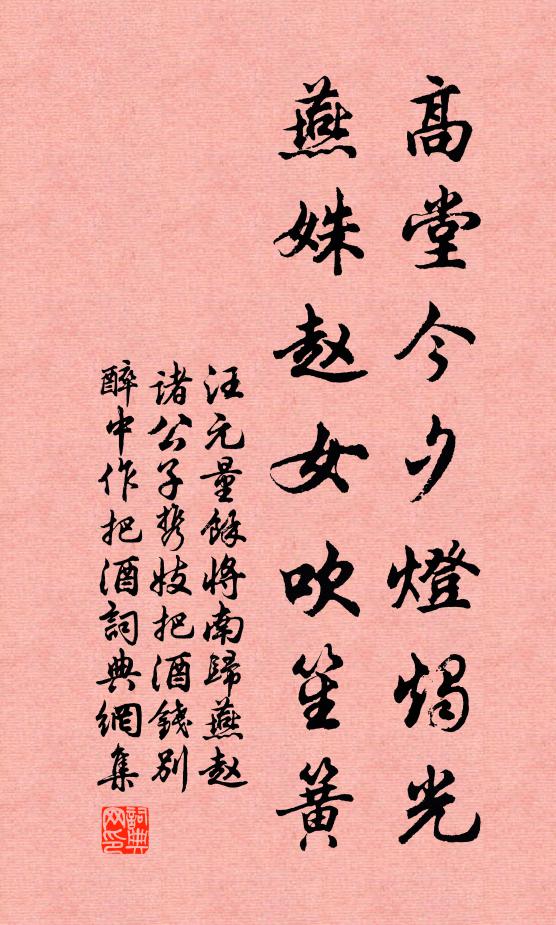 高堂今夕燈燭光
燕姝赵女吹笙簧
汪元量餘将南歸燕赵
諸公子携妓把酒錢别
醉中作把酒詞典網集
詞典
网印